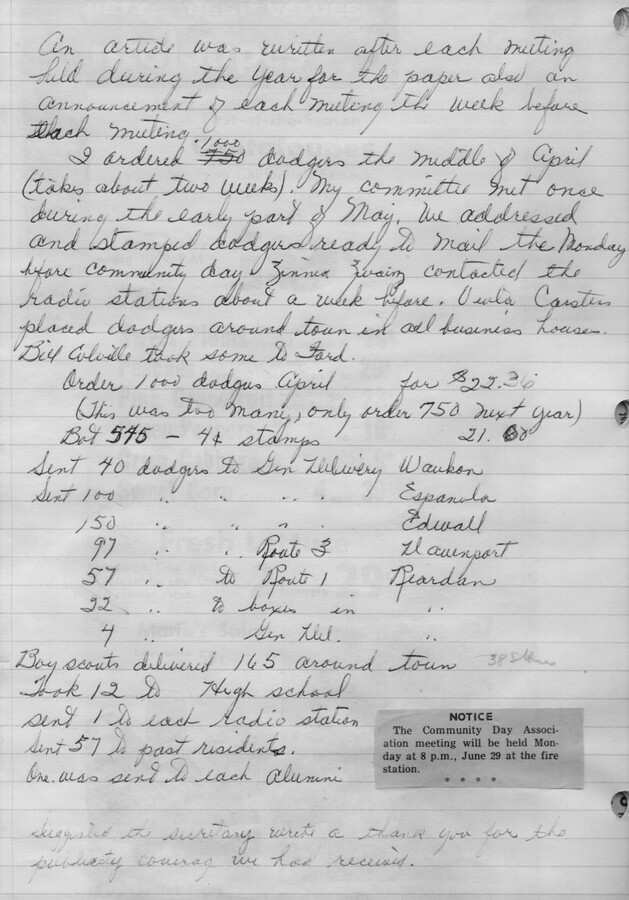 An article was written after each meeting
held during the year for the paper also an
announcement of each meeting the week before
each meeting
1000
I ordered 750 dodgers the middle of April
(takes about two weeks). My committee met once
during the early part of May. We addressed
and stamped dodgers ready to mail the Monday
before community day Zinnia Zwainz contacted the
radio stations about a week before. Carstens
placed dodgers around town in all business houses.
Bill Colville took some to Ford.
Order 1000 dodgers April for $22.36
(This was too many, only order 750 next year)
Bot 545 - 4¢ stamps 21.80
Sent 40 dodgers to Gen Delivery Waukon
Sent 100 " " " " Espanola
150 " " " " Edwall
97 " " Route 3 Davenport
57 " to Route 1 Reardan
22 " to boxes in "
4 " Gen Del. "
Boy scouts delivered 165 around town
Took 12 to High school
sent 1 to each radio station
Sent 57 to past residents.
One was sent to each alumini
NOTICE
The Community Day Associ-
ation meeting will be held Mon-
day at 8 p.m., June 29 at the fire
station.
* * * *
Suggested the secretary write a thank you for the
publicity coverag we had received.